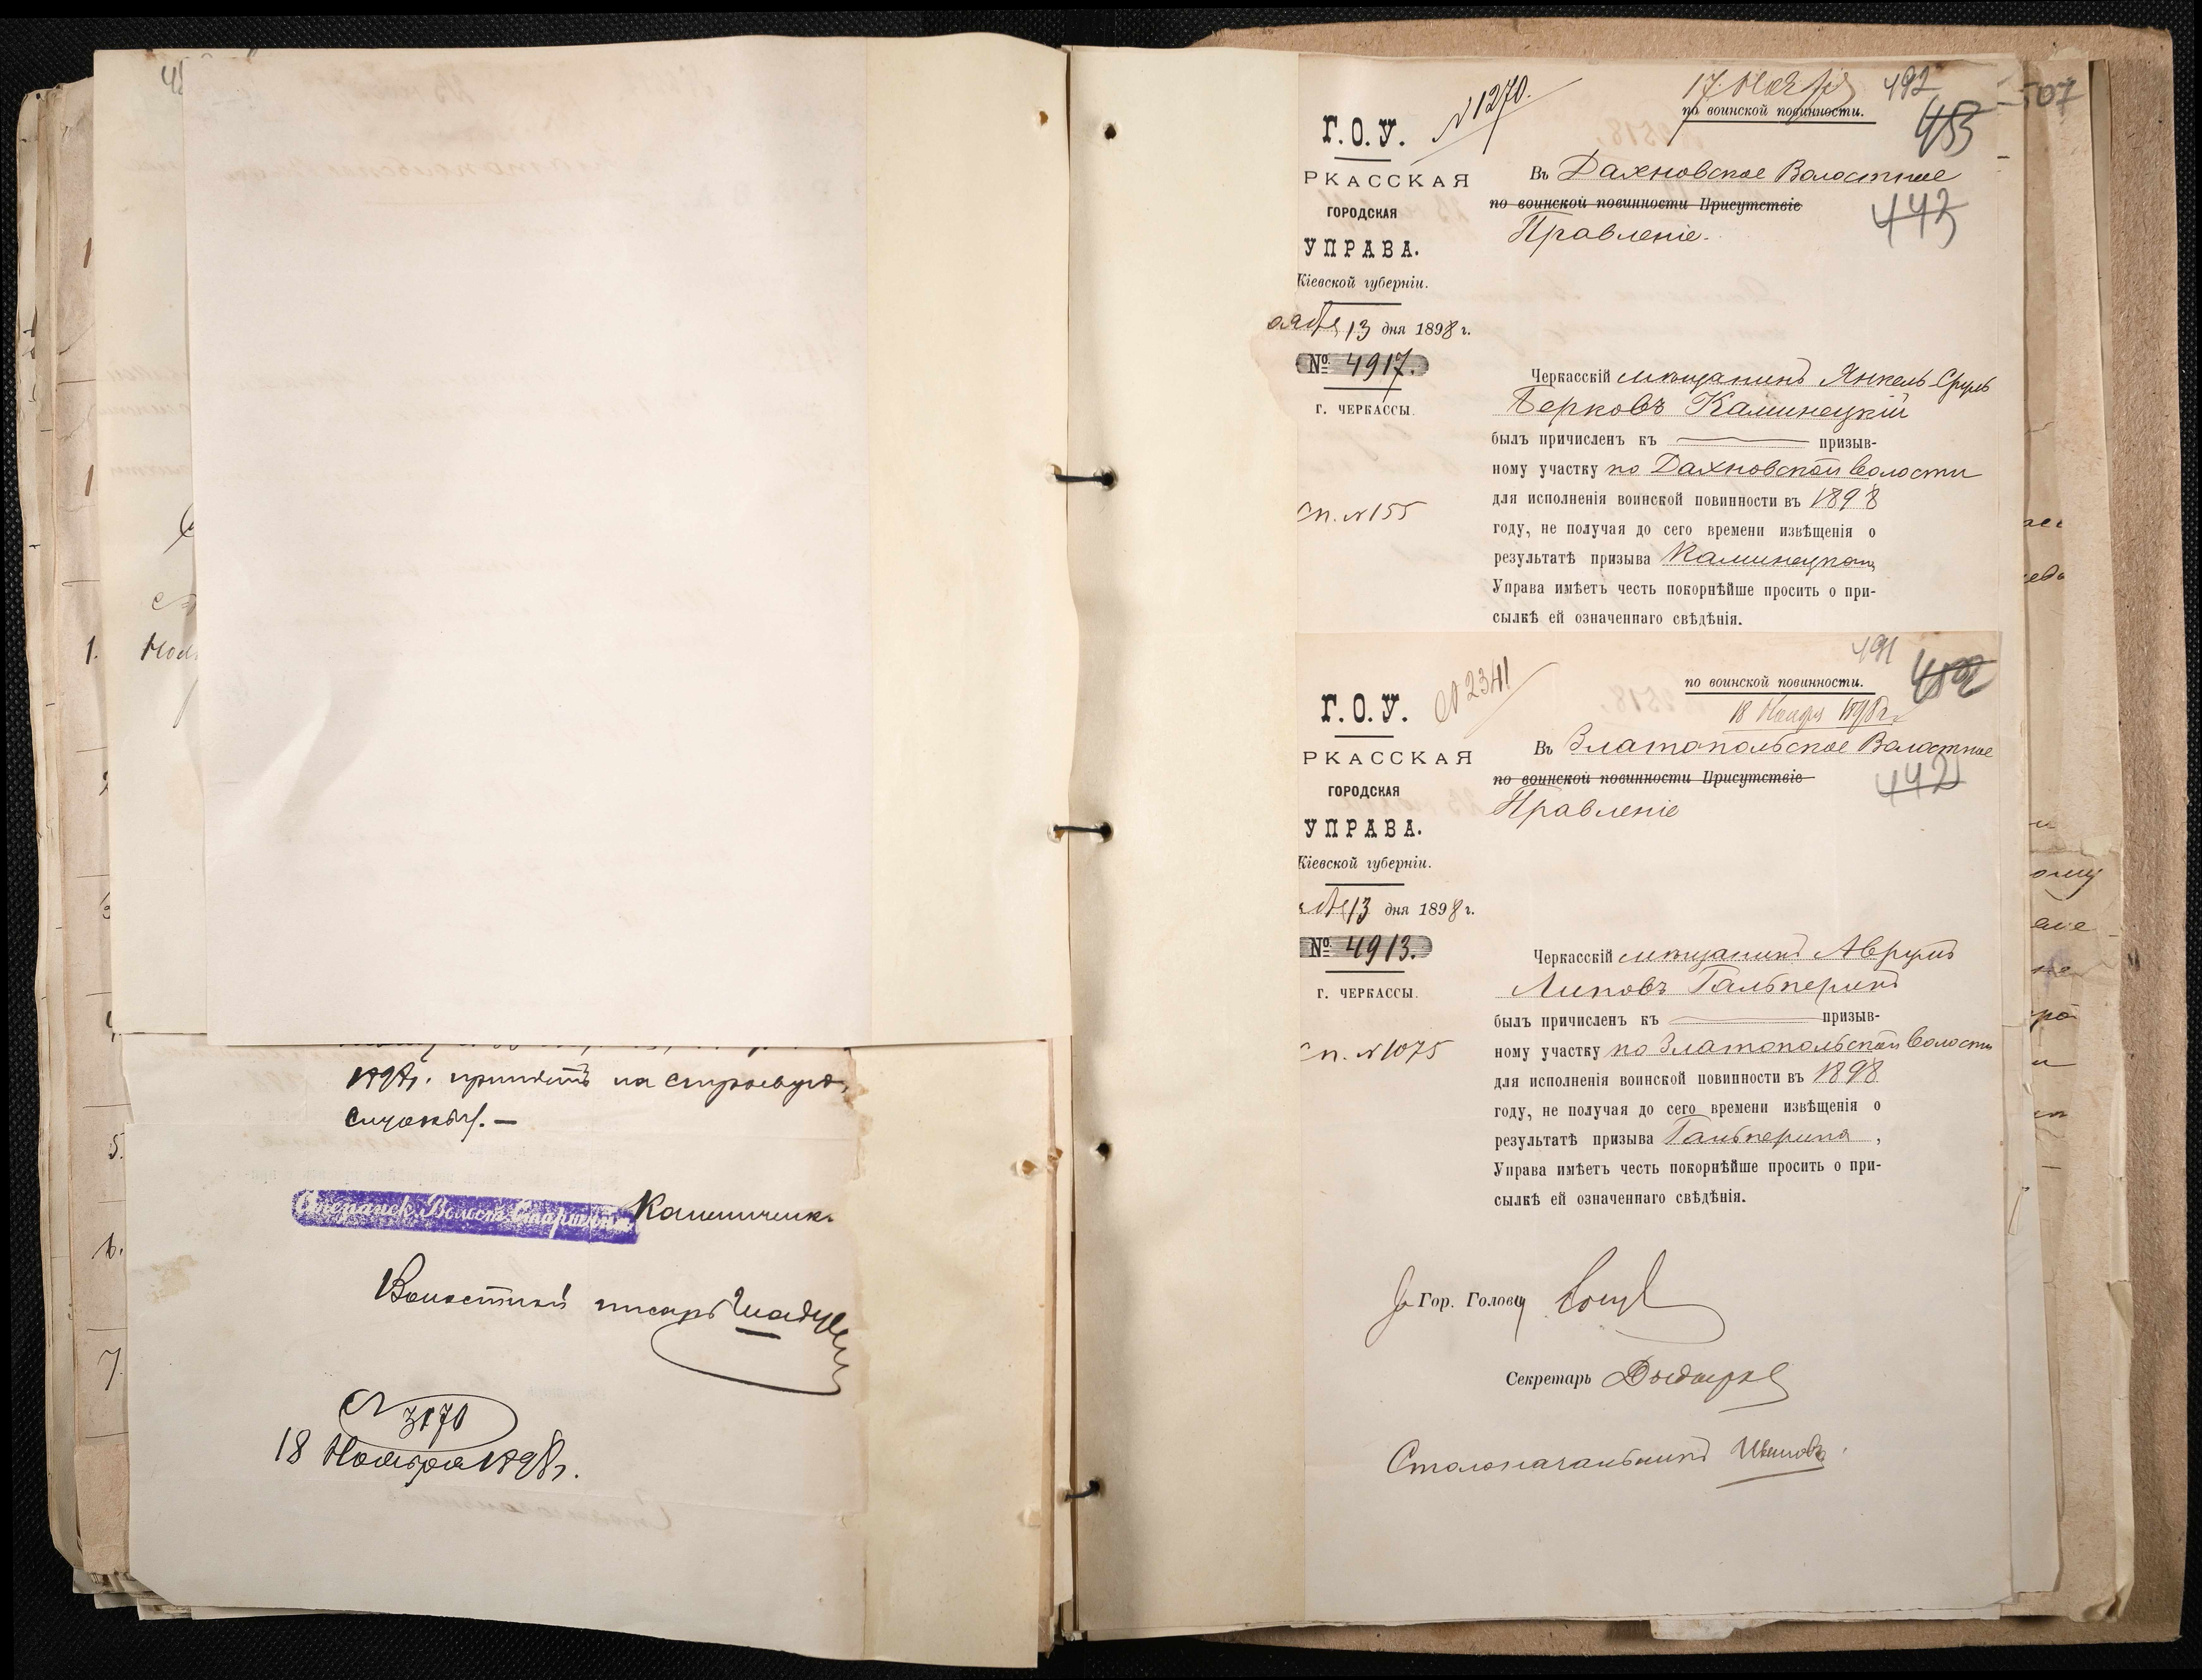 1898 г. принятъ на строевую
службу. —
Волост. Старшина
Волостной писарь
№ 3170
18 Ноября 1898 г.
17 Нояб
492
507
№ 1270.
по воинской повинности.
453
Г. О. У.
РКАССКАЯ
ГОРОДСКАЯ
УПРАВА.
Кіевской губерніи.
оября 13 дня 1898 г.
№ 4917.
г. ЧЕРКАССЫ.
Сп. № 155
Въ Дахновское Волостное
по воинской повинности Присутствіе
443
Правленіе.
Черкасскій мѣщанинъ Янкель-Сруль
Берковъ Каминецкій
былъ причисленъ къ призыв-
ному участку по Дахновской волости
для исполненія воинской повинности въ 1898
году, не получая до сего времени извѣщенія о
результатѣ призыва Каминецкаго
Управа имѣетъ честь покорнѣйше просить о при-
сылкѣ ей означеннаго свѣдѣнія.
491
№ 2341
по воинской повинности.
452
18 Ноября 1898 г.
Г. О. У.
РКАССКАЯ
ГОРОДСКАЯ
УПРАВА.
Кіевской губерніи.
ября 13 дня 1898 г.
№ 4913.
г. ЧЕРКАССЫ.
Сп. № 1075
Въ Златопольское Волостное
по воинской повинности Присутствіе
442
Правленіе
Черкасскій мѣщанинъ Аврумъ
Липовъ Гальперинъ
былъ причисленъ къ призыв-
ному участку по Златопольской волости
для исполненія воинской повинности въ 1898
году, не получая до сего времени извѣщенія о
результатѣ призыва Гальперина,
Управа имѣетъ честь покорнѣйше просить о при-
сылкѣ ей означеннаго свѣдѣнія.
За Гор. Голову
Секретарь
Столоначальникъ Ивановъ